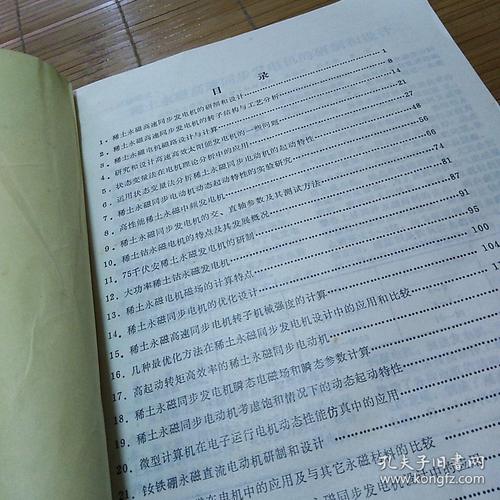 目 录
1. 稀土永磁高速同步发电机的研制和设计 1
2. 稀土永磁高速同步发电机的转子结构与工艺分析 8
3. 稀土永磁电机磁路设计与计算 14
4. 研究和设计高速高效大如能发电机的一些问题 21
5. 状态变量法在电机理论分析中的应用 27
6. 运用状态变量法分析稀土永磁同步电动机的起动特性 48
7. 稀土永磁同步电动机动态起动特性的实验研究 56
8. 高性能稀土永磁中频发电机 66
9. 稀土永磁同步发电机的交、直轴参数及其测试方法 74
10. 稀土钴永磁电机的特点及其发展概况 81
11. 75千伏安稀土永磁发电机的研制 87
12. 大功率稀土钴永磁发电机 91
13. 稀土永磁电机磁场的计算特点 95
14. 稀土永磁同步电机的优化设计 100
15. 稀土永磁高速同步电机转子机械强度的计算
16. 几种最优化方法在稀土永磁同步发电机设计中的应用和比较
17. 高起动转矩高效率的稀土永磁同步电动机
18. 稀土永磁同步发电机瞬态电磁场和瞬态参数计算
19. 稀土永磁同步电动机考虑饱和情况下的动态起动特性
20. 微型计算机在电子运行电机动态性能仿真中的应用
21. 钕铁硼永磁直流电动机研制和设计
在电机中的应用及与其它永磁材料的比较
孔夫子旧书网